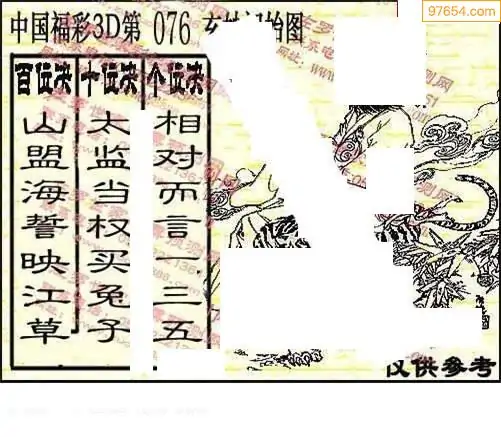 97654.com
中国福彩3D第 076
百位决
十位决
个位决
山盟海誓映江草
太监当权买兔子
相对而言一三五
仅供参考